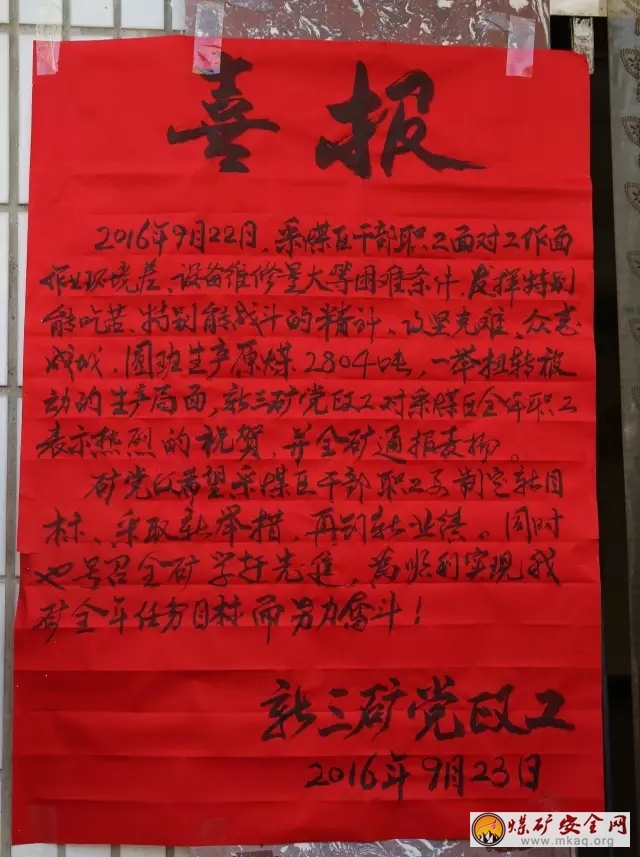 喜报
2016年9月22日，采煤区干部职工面对工作面
作业环境差、设备维修量大等困难条件，发挥特别
能吃苦、特别能战斗的精神，攻坚克难、众志
成城，圆班生产原煤2804吨，一举扭转被
动的生产局面，新三矿党政工对采煤区全体职工
表示热烈的祝贺，并全矿通报表扬。
矿党政希望采煤区干部职工及制定新目
标、采取新举措，再创新业绩。同时
也号召全矿学赶先進，為顺利实现我
矿全年任务目标而努力奋斗！
新三矿党政工
2016年9月23日
煤矿安全网
www.mkaq.org